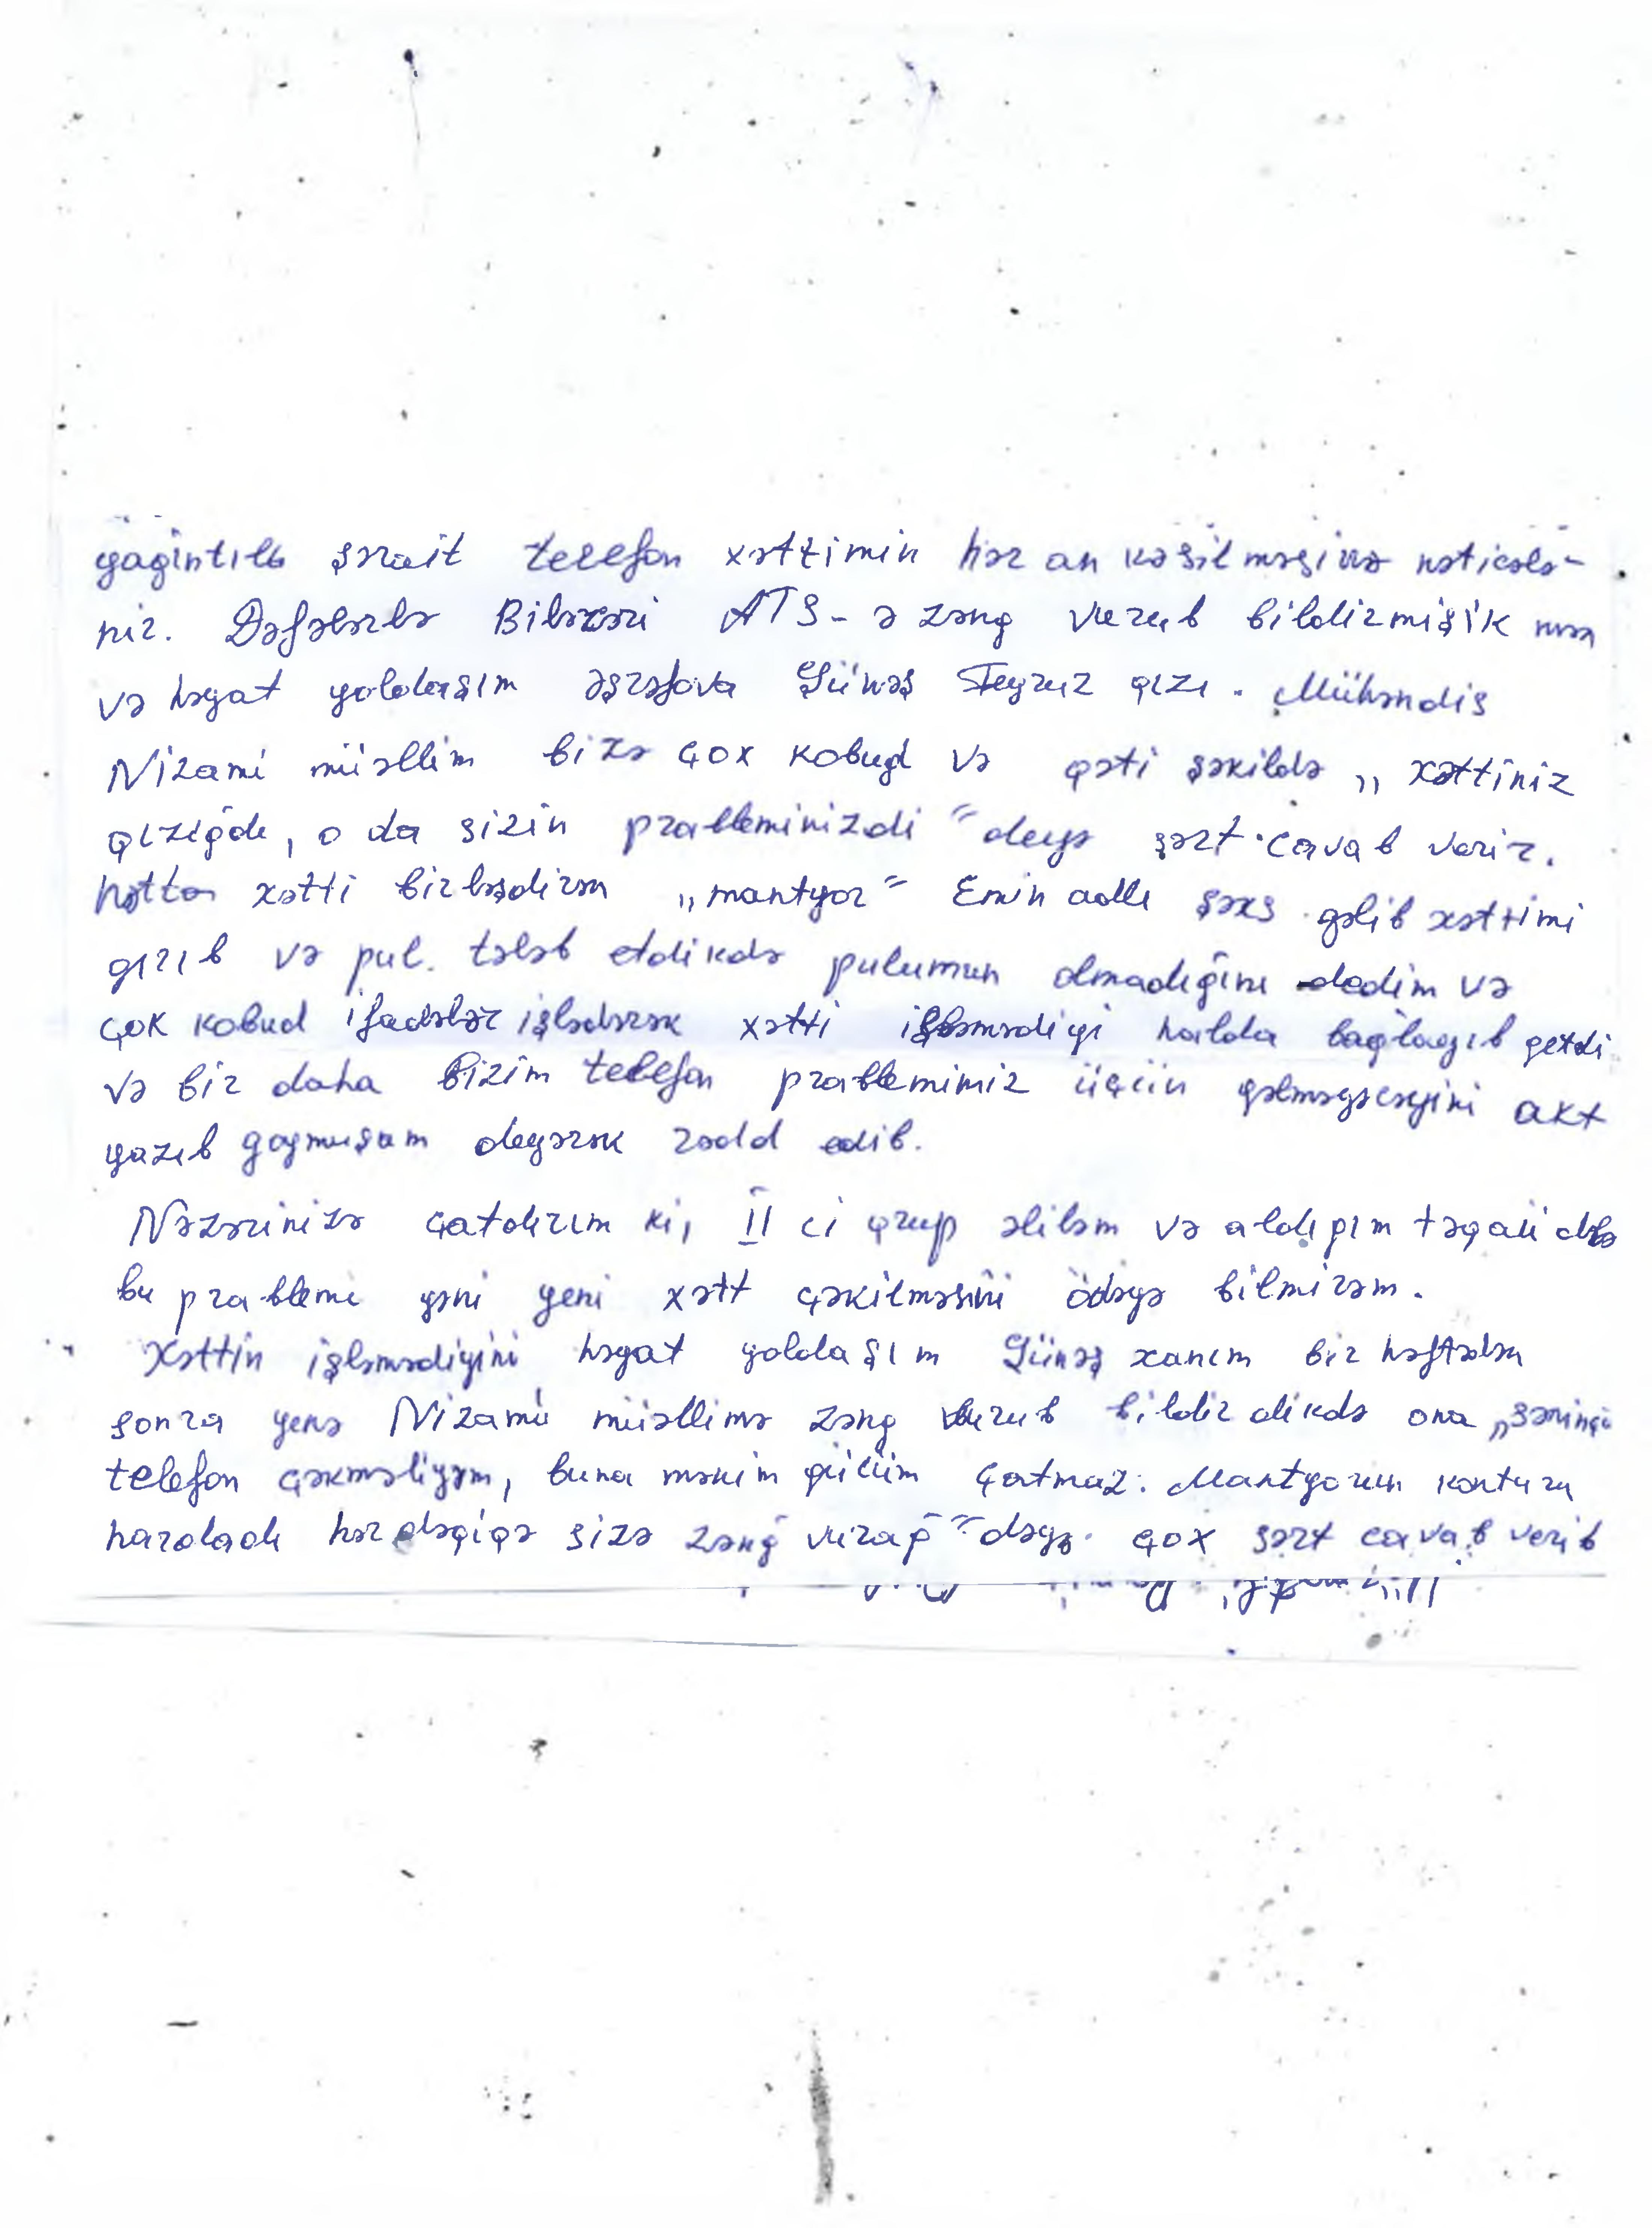 yağıntılı şərait telefon xəttimin hər an kəsilməsinə nəticələ-
nir. Dəfələrlə Biləcəri ATS-ə zəng vurub bildirmişik mən
və həyat yoldaşım Əşrəfova Günəş Feyruz qızı. Mühəndis
Nizami müəllim bizə çox kobud və qəti şəkildə „xəttiniz
qızığdı, o da sizin prableminizdi" deyə sərt cavab verir.
Hətta xətti birləşdirən „mantyor" Emin adlı şəxs gəlib xəttimi
qırıb və pul tələb etdikdə pulumun olmadığını dedim və
çok kobud ifadələr işlədərək xətti işləmədiyi halda bağlayıb getdi
və bir daha bizim telefon prablemimiz üçün gəlməyəcəyini akt
yazıb goymuşam deyərək rədd edib.
Nəzərinizə çatdırım ki, II ci qrup əliləm və aldıgım təqaüdlə
bu prablemi yəni yeni xətt çəkilməsini ödəyə bilmirəm.
Xəttin işləmədiyini həyat yoldaşım Günəş xanım bir həftədən
sonra yenə Nizami müəllimə zəng vurub bildirdikdə ona „səninçü
telefon çəkməliyəm, buna mənim gücüm çatmaz. Mantyorun kontuzu
hardadı hər dəqiqə sizə zəng vurağ" dəyə çox sərt cavab verib